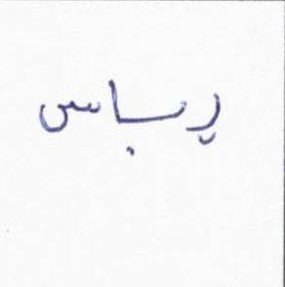 ریباس